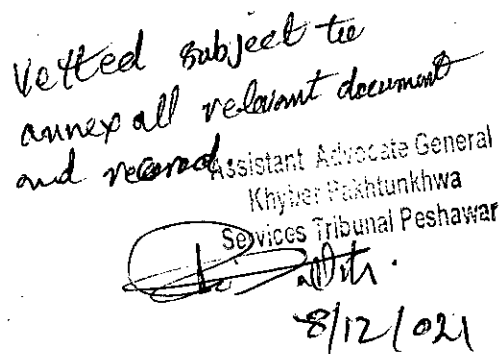 Vetted subject to
annex all relevant document
and record.
Assistant Advocate General
Khyber Pakhtunkhwa
Services Tribunal Peshawar
8/12/021